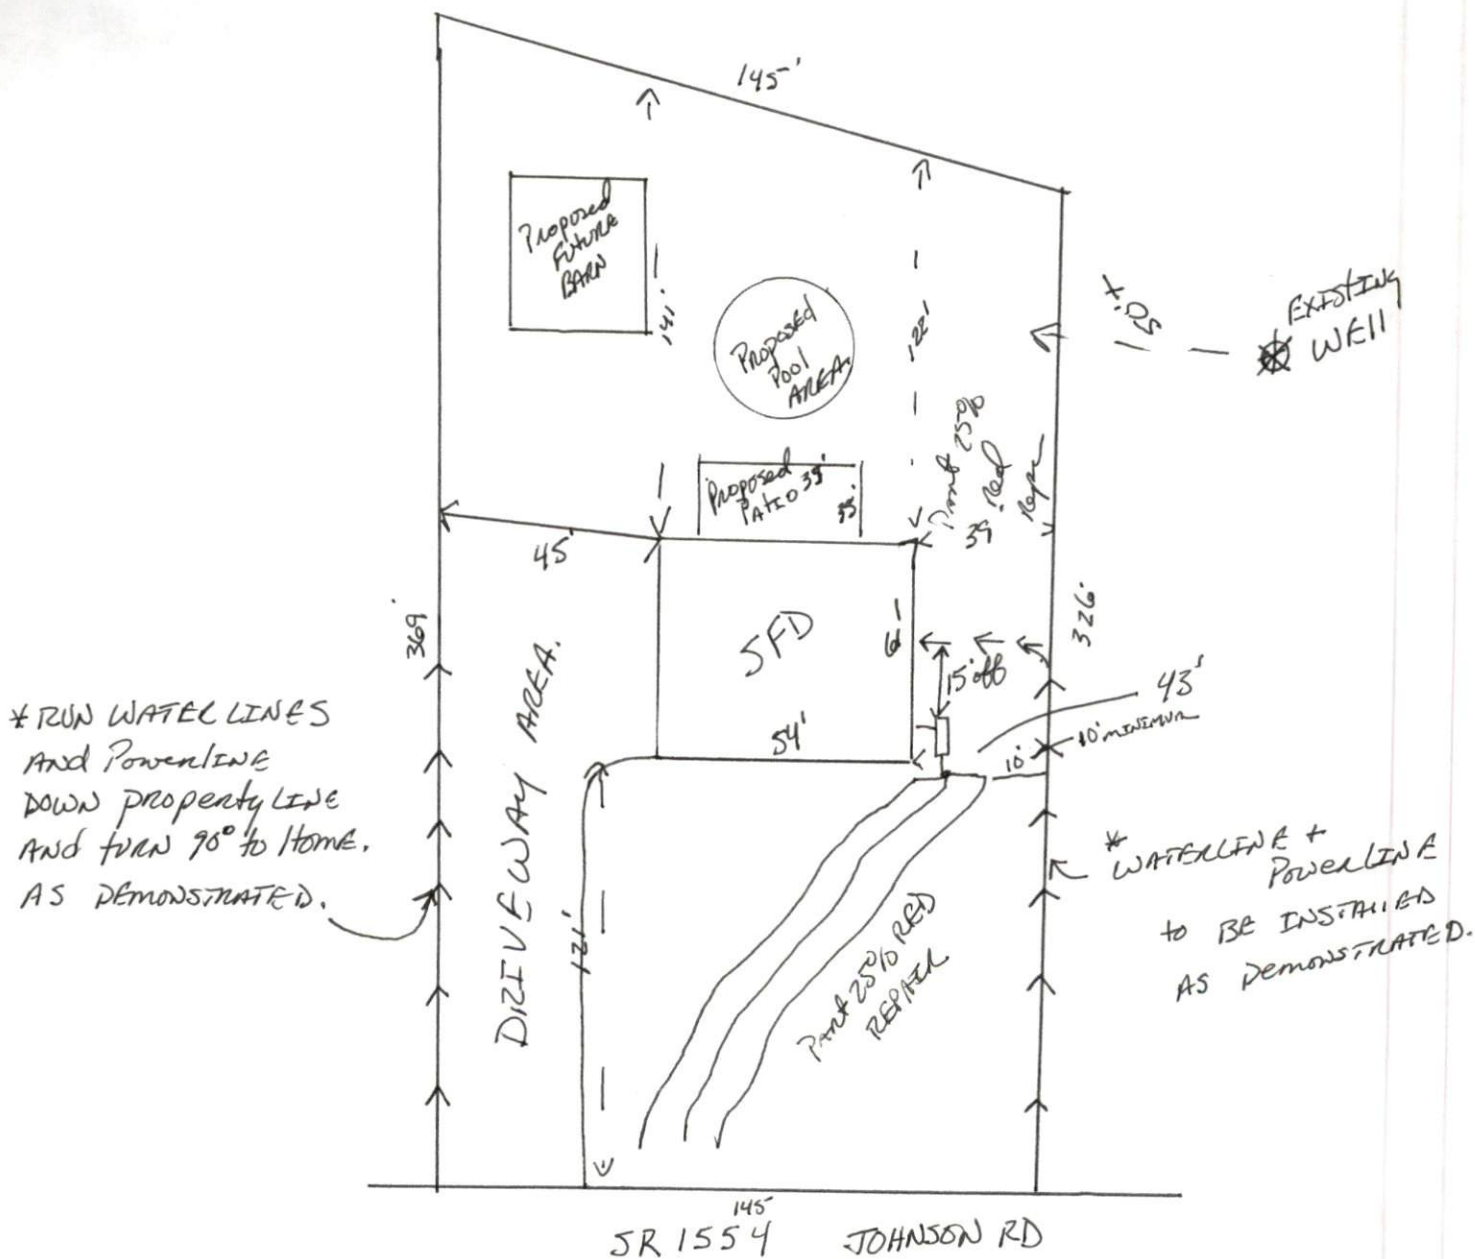 145'
Proposed
FUTURE
BARN
141'
Proposed
Pool
AREA.
122'
50'+
EXISTING
WELL
Proposed
PATIO 35'
35'
Part 25%
Red
39
45'
369'
326'
SFD
54'
15' off
43'
10'
10' MINIMUM
* RUN WATER LINES
AND PowerLINE
DOWN property LINE
AND turn 90° to Home.
AS DEMONSTRATED.
DRIVEWAY AREA.
121'
Part 25% RED
REPAIR
* WATERLINE +
PowerLINE
to BE INSTALLED
AS Demonstrated.
145'
SR 1554 JOHNSON RD